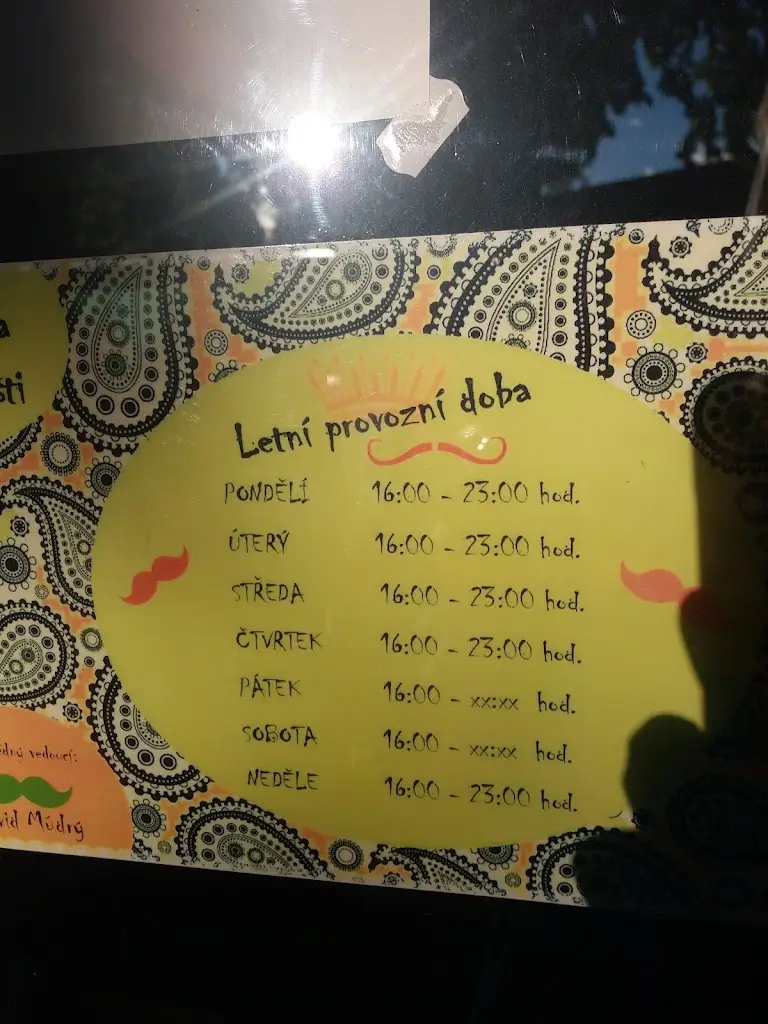 Letní provozní doba
PONDĚLÍ 16:00 - 23:00 hod.
ÚTERÝ 16:00 - 23:00 hod.
STŘEDA 16:00 - 23:00 hod.
ČTVRTEK 16:00 - 23:00 hod.
PÁTEK 16:00 - xx:xx hod.
SOBOTA 16:00 - xx:xx hod.
NEDĚLE 16:00 - 23:00 hod.
vedoucí:
Múdrý